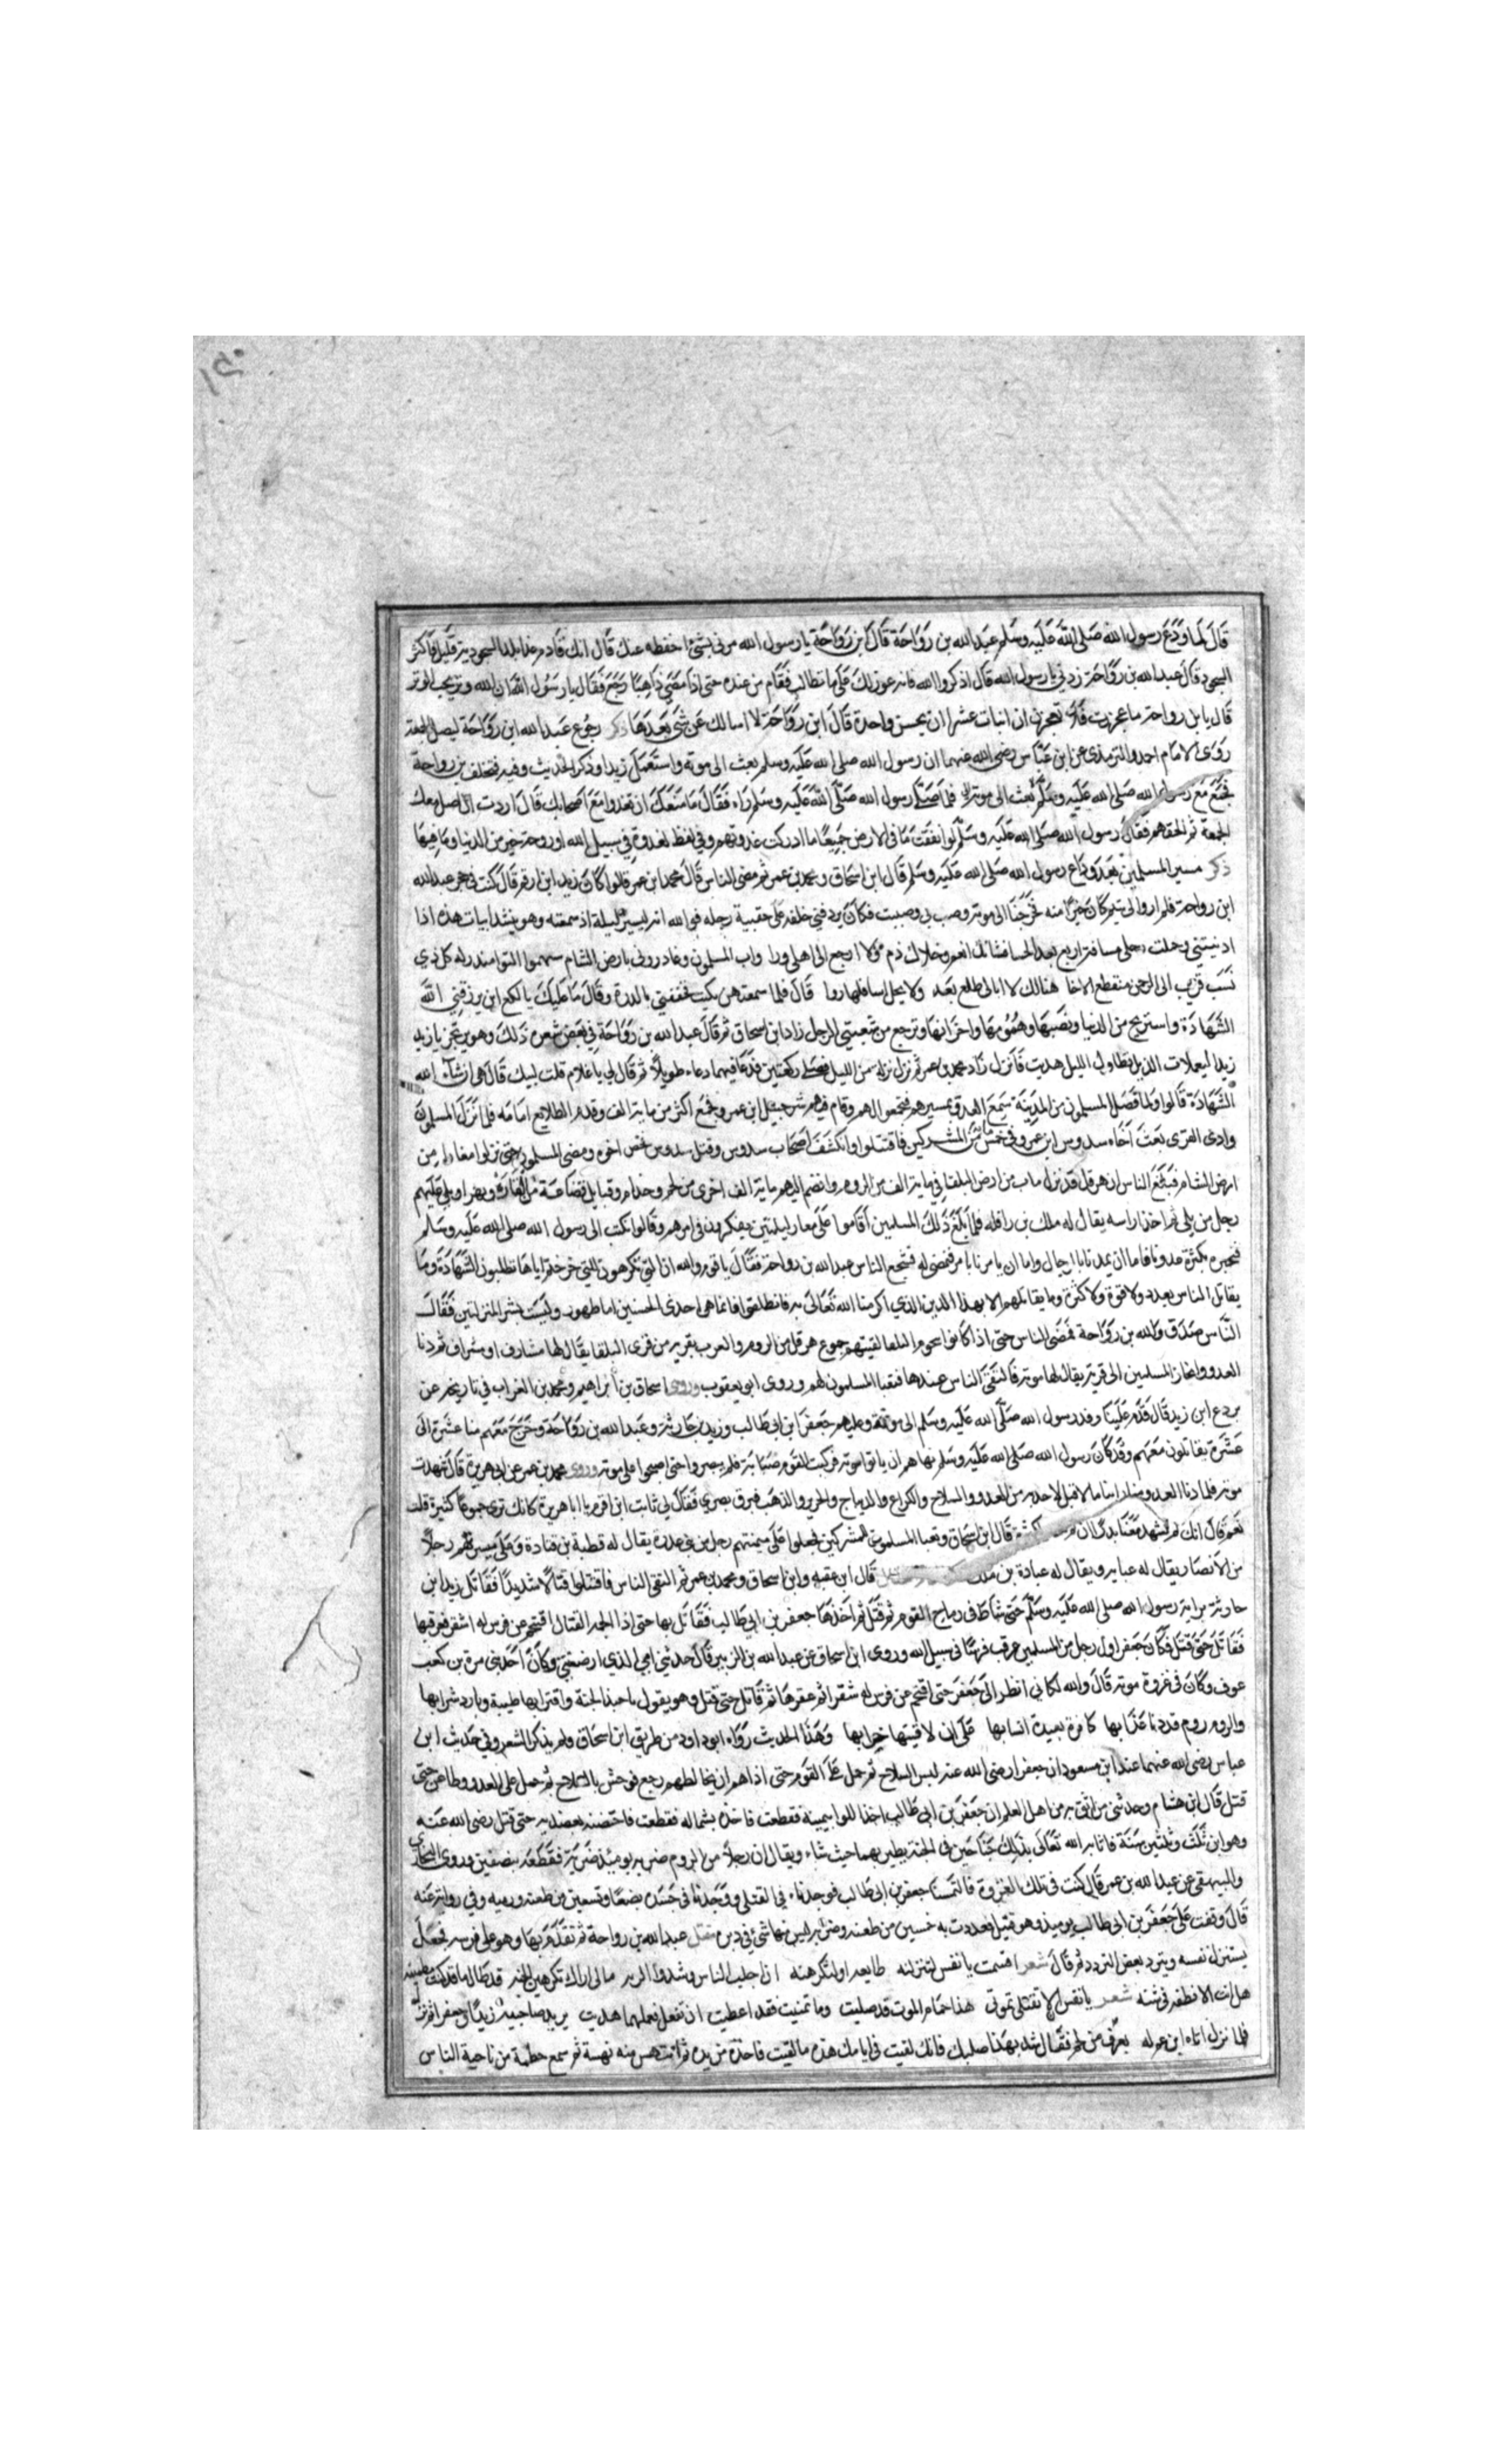 قال لما ودع رسول الله صلى الله عليه وسلم عبد الله بن رواحة قال ابن رواحة يا رسول الله مرني بشئ احفظه عنك قال انك قادم غدا بلدا السجود به قليل فاكثر
السجود قال عبد الله بن رواحة زدني يا رسول الله قال اذكر الله فانه عون لك على ما تطالب فقام من عنده حتى اذا مضى ذاهبا رجع فقال يا رسول الله ان الله وتر يحب الوتر
قال يا ابن رواحة ما عجزت فلا تعجزن ان اسات عشرا ان تحسن واحدة قال ابن رواحة لا اسالك عن شئ بعدها ذكر رجوع عبد الله ابن رواحة ليصلي الجمعة
روى الامام احمد والترمذي عن ابن عباس رضي الله عنهما ان رسول الله صلى الله عليه وسلم بعث الى موتة واستعمل زيدا وذكر الحديث وفيه فتخلف بن رواحة
فجمع مع رسول الله صلى الله عليه وسلم بعث الى موته فلما صلى رسول الله صلى الله عليه وسلم راه فقال ما منعك ان تغدوا مع اصحابك قال اردت ان اصلي معك
الجمعة ثم الحقهم فقال رسول الله صلى الله عليه وسلم لو انفقت ما في الارض جميعا ما ادركت غدوتهم وفي لفظ لغدوة في سبيل الله او روحة خير من الدنيا وما فيها
ذكر مسير المسلمين بعد وداع رسول الله صلى الله عليه وسلم قال ابن اسحاق ومحمد بن عمر ثم مضى الناس قال محمد ابن عمر قالوا كان زيد ابن ارقم قال كنت في حجر عبد الله
ابن رواحة فلم ار والى يتيم كان خيرا منه فخرجنا الى موته وصب بي وصببت فكان يردفني خلفه على حقيبة رحله فوالله انه ليسير ليلة اذ سمعته وهو ينشد ابيات هذه اذا
ادنيتني وحملت رحلي مسافة اربع بعد الحسا فشانك انعم وخلاك ذم ولا ارجع الى اهلي ورا واب المسلمون وغادروني بارض الشام
نسب قريب الى الرحمن منقطع الاخا هنالك لا ابالي طلع بعد ولا نخل اسافلها روا قال فلما سمعتهن بكيت فخفقني بالدرة وقال ما عليك يا لكع ان يرزقني الله
الشهادة واستريح من الدنيا ونصبها وهمومها واحزانها وترجع بين شعبتي الرحل زاد ابن اسحاق ثم قال عبد الله بن رواحة في بعض شعره ذلك وهو يرتجز يا زيد
زيد اليعملات الذبل تطاول الليل هديت فانزل زاد محمد بن عمر ثم نزل نزله من الليل فصلى ركعتين فدعا فيهما دعاء طويلا ثم قال لي يا غلام قلت لبيك قال هي ان شاء الله
الشهادة قالوا ولما فصل المسلمون من المدينة سمع العدو بمسيرهم فجمعوا لهم وقام فيهم شرحبيل ابن عمرو فجمع اكثر من ماية الف وقدم الطلايع امامه فلما نزل المسلمون
وادي القرى بعث اخاه سدوس ابن عمرو في خمسين من المشركين فاقتتلوا وانكشف اصحاب سدوس وقتل سدوس اخوه ومضى المسلمون حتى نزلوا معان من
ارض الشام فبلغ الناس ان هرقل قد نزل ماب من ارض البلقا في ماية الف من الروم وانضم اليهم ماية الف اخرى من لخم وجذام وقبايل قضاعة وبهرا وبلي عليهم
رجل من بلي ثم احد اراسه يقال له ملك بن رافله فلما بلغ ذلك المسلمين اقاموا على معان ليلتين يفكرون في امرهم وقالوا نكتب الى رسول الله صلى الله عليه وسلم
فنخبره بكثرة عدونا فاما ان يمدنا بالرجال واما ان يامرنا بامر فنمضى له فشجع الناس عبد الله بن رواحة فقال يا قوم والله ان التي تكرهون للتي خرجتم اياها تطلبون الشهادة وما
يقاتل الناس بعدد ولا قوة ولا كثرة وما يقاتلهم الا بهذا الدين الذي اكرمنا الله تعالى به فانطلقوا فانما هي احدى الحسنيين اما ظهور وليست بشر المنزلتين فقال
الناس صدق والله بن رواحة فمضى الناس حتى اذا كانوا بتخوم البلقا لقيتهم جموع هرقل من الروم والعرب بقرية من قرى البلقا يقال لها مشارف او شراف ثم دنا
العدو وانحاز المسلمين الى قرية يقال لها موته فالتقى الناس عندها فتعبا المسلمون لهم وروى ابو يعقوب وروى اسحاق بن ابراهيم ومحمد بن القراب في تاريخه عن
بردع ابن زيد قال قدم علينا وفد رسول الله صلى الله عليه وسلم الى موتة وعليهم جعفر ابن ابي طالب وزيد بن حارثة وعبد الله بن رواحة وخرج معهم منا عشرة الى
عشرة يقاتلون معهم وقد كان رسول الله صلى الله عليه وسلم نهاهم ان ياتوا موته فركبت القوم ضبابة فلم يبصروا حتى اصبحوا على موته وروى محمد بن عمر عن ابي هريرة قال شهدت
موته فلما دنا العدو منا راينا ما لا قبل لاحد به من العدد والسلاح والكراع والديباج والحرير والذهب فبرق بصري فقال لي ثابت ابن اقرم يا ابا هريرة كانك ترى جموعا كثيرة قلت
نعم قال انك لم تشهد معنا بدرا ان كثرة قال ابن اسحاق وتعبا المسلمون للمشركين فجعلوا على ميمنتهم رجل بن بني عذرة يقال له قطبة بن قتادة وعلى ميسرتهم رجلا
من الانصار يقال له عبايه ويقال له عبادة بن ملك قال ابن عقبه وابن اسحاق ومحمد بن عمر ثم التقى الناس فاقتتلوا قتالا شديدا فقاتل زيد ابن
حارثة براية رسول الله صلى الله عليه وسلم حتى شاط في رماح القوم ثم قتل ثم اخذها جعفر بن ابي طالب فقاتل بها حتى اذا الحمه القتال اقتحم عن فرس له اشقر فعرقبها
فقاتل حتى قتل فكان جعفر اول رجل من المسلمين عرقب فرسا في سبيل الله وروى ابن اسحاق عن عبد الله بن الزبير قال حدثني ابي الذي ارضعني وكان احد بني مرة بن كعب
عوف وكان في غزوة موته قال والله لكاني انظر الى جعفر حتى اقتحم عن فرس له شقرا ثم عقرها ثم قاتل حتى قتل وهو يقول يا حبذا الجنة واقترابها طيبة وبارد شرابها
والروم روم قد دنا عذابها كافرة بعيدة انسابها على ان لاقيتها ضرابها وهذا الحديث رواه ابو داود من طريق ابن اسحاق ولم يذكر الشعر وفي حديث ابن
عباس رضي الله عنهما عند ابن مسعود ان جعفرا رضي الله عنه لبس السلاح ثم حمل على القوم حتى اذا هم ان يخالطهم رجع فوحش بالسلاح ثم حمل على العدو وطاعن حتى
قتل قال ابن هشام وحدثني من اثق به من اهل العلم ان جعفر بن ابي طالب اخذ اللوا بيمينه فقطعت فاخذه بشماله فقطعت فاحتضنه بعضديه حتى قتل رضي الله عنه
وهو ابن ثلث وثلثين سنة فاثابه الله تعالى بذلك جناحين في الجنة يطير بهما حيث شاء ويقال ان رجلا من الروم ضربه يوميذ ضربة فقطعه بنصفين وروى البخاري
والبيهقي عن عبد الله بن عمر قال كنت في تلك الغزوة فالتمسنا جعفر بن ابي طالب فوجدناه في القتلى ووجدنا في جسده بضعا وتسعين من طعنه ورميه وفي رواية عنه
قال وقفت على جعفر بن ابي طالب يوميذ وهو قتيل فعددت به خمسين من طعنه وضربه ليس منها شئ في دبره مقتل عبد الله بن رواحة ثم تقدم بها وهو على فرسه فجعل
يستنزل نفسه ويتردد بعض التردد ثم قال شعر اقسمت يا نفس لتنزلنه طايعه او لتكرهنه ان اجلب الناس وشدوا الرنه مالي اراك تكرهين الجنه قد طال ما قد كنت مطمينه
هل انت الا نطفه في شنه شعر يا نفس الا تقتلي تموتي هذا حمام الموت قد صليت وما تمنيت فقد اعطيت ان تفعلي فعلهما هديت يريد صاحبيه زيدا وجعفرا ثم نزل
فلما نزل اتاه ابن عم له بعرق من لحم فقال شد بهذا صلبك فانك لقيت في ايامك هذه ما لقيت فاخذه من يده ثم انتهس منه نهسة ثم سمع حطمة من ناحية الناس